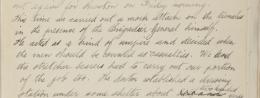 out again for bivouac on Friday morning.
This time we carried out a mock attack on the trenches
in the presence of the Brigadier General himself.
He acted as a kind of umpire and decided when
the men should be counted as casualties. We and
the stretcher bearers had to carry out our portion
of the job too. The doctor established a dressing
station under some shelter about